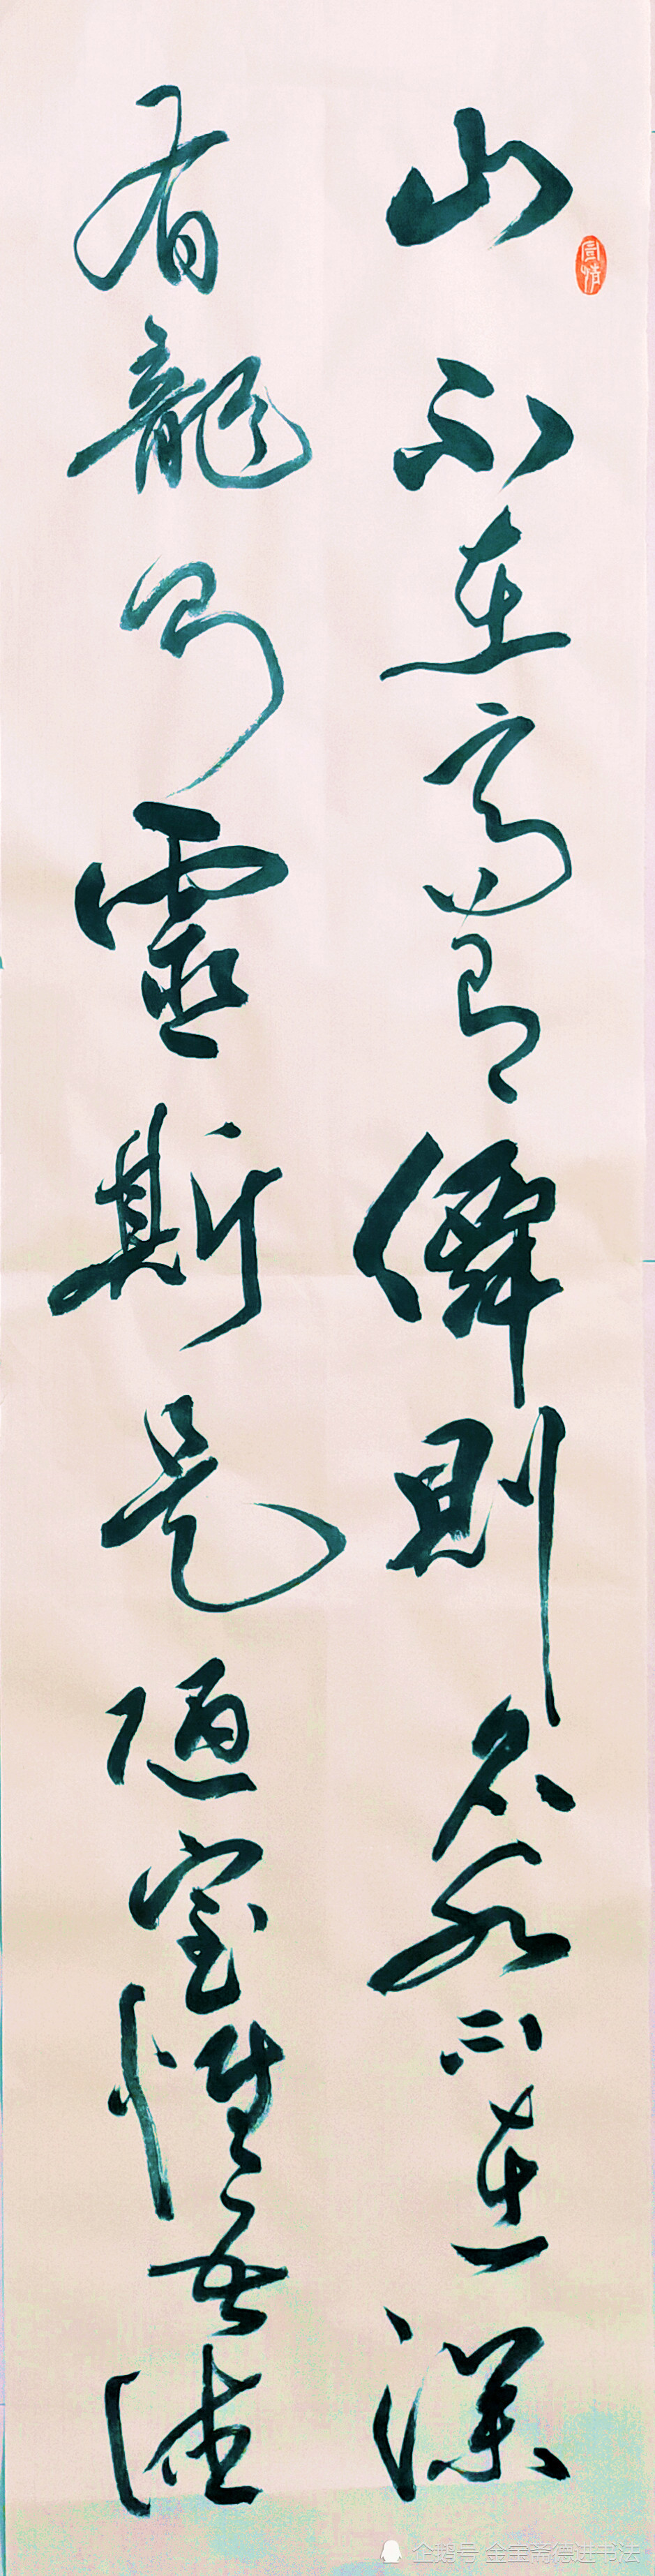 山不在高有僊則名水不在深
有龍則靈斯是陋室惟吾德
企鹅号 金宝斋德进书法